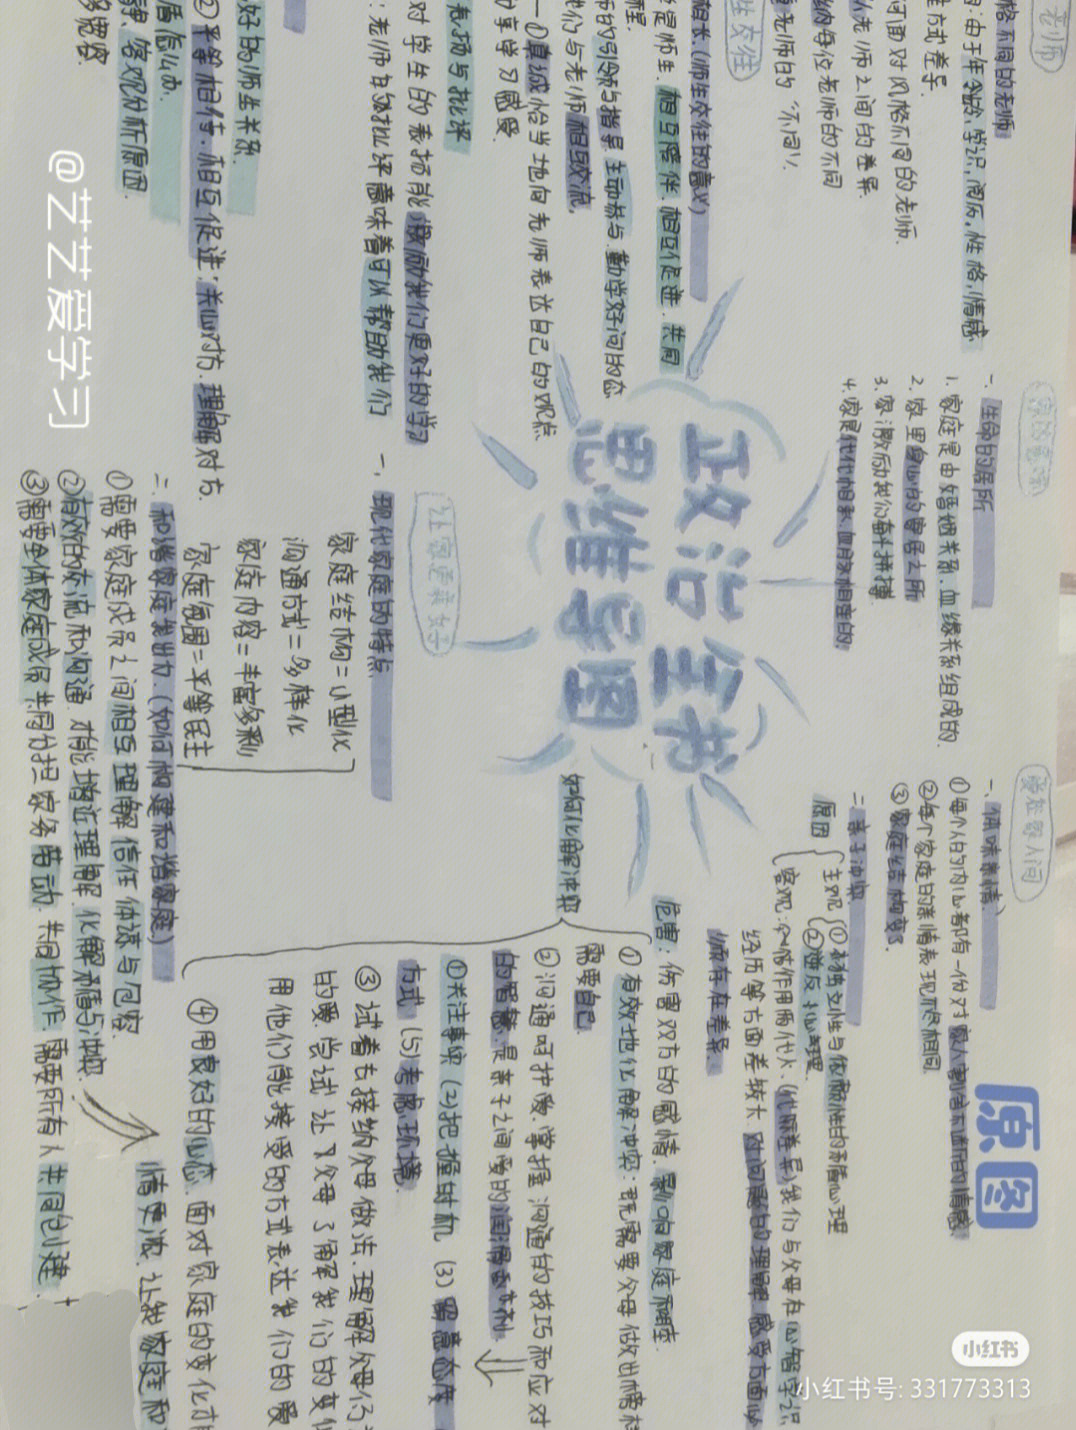 政治全书
思维导图
老师
格不同的老师
由于年龄,学识,阅历,性格,情感
方式差异
何面对风格不同的老师.
师之间的差异
纳每位老师的不同
老师的"不同"
生交往
相长(师生交往的意义)
是师生,相互陪伴,相互促进,共同
的引领与指导,主动参与,勤学好问的态
们与老师相互交流,
①真诚恰当地向老师表达自己的观点
享学习感受
表扬与批评
对学生的表扬
激励我们更好的学习
:老师的批评意味着可以帮助我们
好的师生关系.
②平等相待,相互促进:关心对方,理解对方.
静,客观分析原因.
一、生命的居所
1.家庭是由婚姻关系.血缘关系组成的.
2.家里身心的寄居之所
3.家激励我们奋斗拼搏
4.家是代代相承、血脉相连的
一、现代家庭的特点
家庭结构=小型化
沟通方式=多样化
家庭内容=丰富多彩
家庭氛围=平等民主
二.和谐家庭我出力.(如何构建和谐家庭)
①需要家庭成员之间相互理解信任体谅与包容.
②有效的交流和沟通.才能增近理解,化解矛盾与冲突.
③需要全体家庭成员共同分担家务劳动.共同协作,需要所有人共同创建.
爱在家人间
一、体味亲情
①每个人的内心都有一份对家人割舍不断的情感
②每个家庭的亲情表现不尽相同
③家庭结构变了.
二.亲子冲突
原因
主观
①独立性与依赖性的矛盾心理
②逆反心理
客观:(代际差异)我们与父母在心智学识
经历等方面差较大,对问题的理解 感受方面
存在差异.
危害:伤害双方的感情.影响家庭和睦
如何化解冲突
①有效地化解冲突:既需要父母做出榜样
需要自己.
②沟通呵护爱:掌握沟通的技巧和应对
的智慧.是亲子之间爱的润滑剂
①关注事实 (2)把握时机 (3)留意态度
方式 (5)考虑环境
③试着去接纳父母做法,理解父母
的爱.尝试让父母了解我们的变
用他们能接受的方式表达我们的爱
④用良好的心态.面对家庭的变化
情更浓.让我家庭和
原图
@艺艺爱学习
小红书
小红书号: 331773313